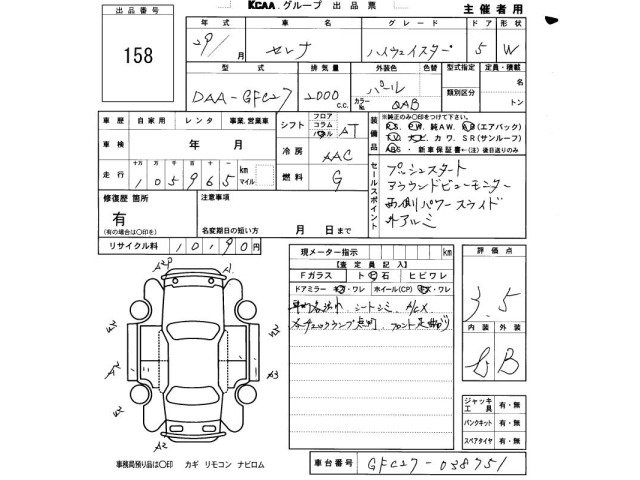 KCAA グループ 出品票
主催者用
出品番号
158
年式 車名 グレード ドア 形状
29/月 セレナ ハイウェイスター 5 W
型式 排気量 外装色 色替 型式指定 定員・積載
DAA-GFC27 2000 C.C. パール
カラーNo. QAB 類別区分 名 トン
車歴 自家用 レンタ 事業、営業車
シフト フロア コラム AT
装備品 ※純正のみ○印をつけて下さい。
P.S. P.W. 純AW. AB(エアバック)
TV. ナビ カワ. SR(サンルーフ)
ABS・新車保証書←(注)後日送りのみ
車検 年 月
冷房 AAC
走行 十万 万 千 百 十 一
105965 km マイル
燃料 G
セールスポイント
プッシュスタート
アラウンドビューモニター
両側パワースライド
外アルミ
修復歴 箇所
有
(有の場合は○印)
注意事項
名変期日の短い方 月 日まで
リサイクル料 10,90円
現メーター指示 km
【査定員記入】
Fガラス ト 石 ヒビワレ
ドアミラー キズ・ワレ ホイール(CP) キズ・ワレ
シートシミ
評価点
3.5
内装 外装
B
ジャッキ 工具 有・無
パンクキット 有・無
スペアタイヤ 有・無
A2
W2
A2
W2
A2
W2
A3
W2
A2
事務局預り品は○印 カギ リモコン ナビロム
車台番号 GFC27-038751